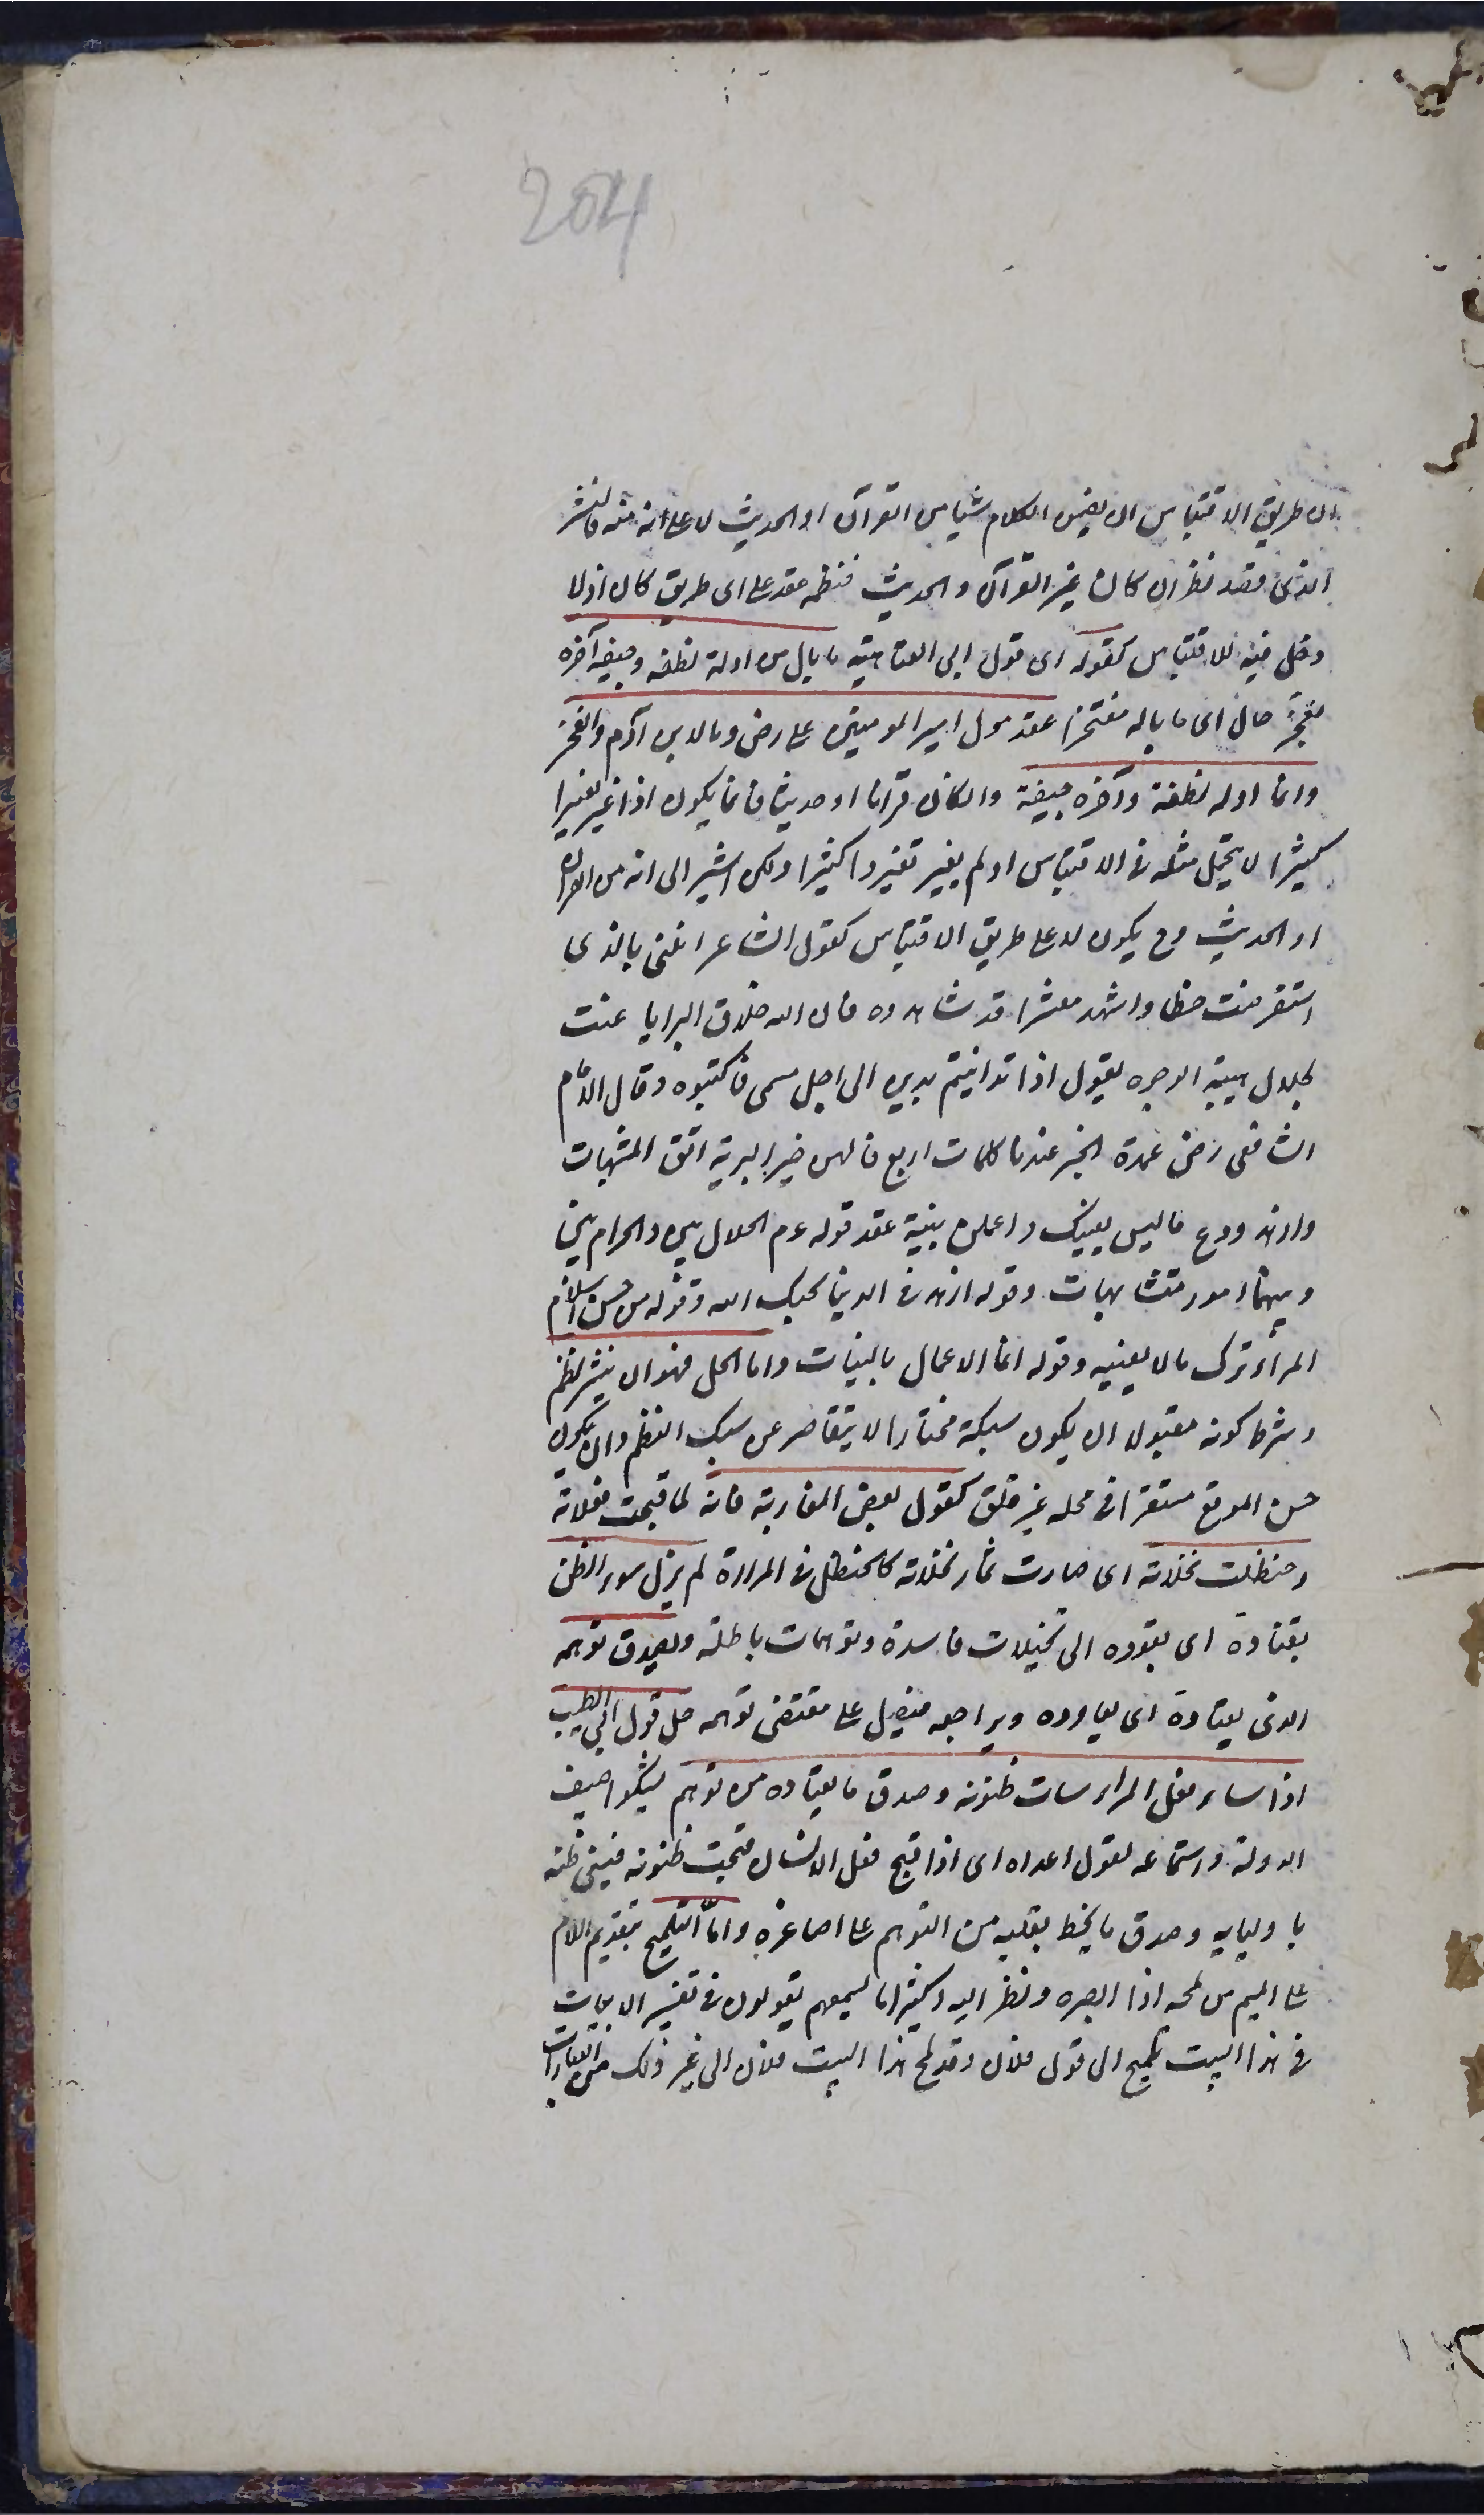 204
ان طريق الاقتباس ان يضمن الكلام شيا من القرآن او الحديث لا على انه منه فالنثر
الذى قصد نظم ان كان غير القرآن والحديث فنظمه عقد على اى طريق كان اذ لا
دخل فيه للاقتباس كقوله اى قول ابى العتاهية ما بال من اوله نطفة وجيفة آخره
يفخر حال اى ما باله مفتخرا عقد قول امير المومنين على رض وما لابن آدم والفخر
وانما اوله نطفة وآخره جيفة وان كان قرآنا او حديثا فانما يكون اذا غير تغييرا
كثيرا لا يتحمل مثله فى الاقتباس او لم يغير تغيرا كثيرا ولكن اشير الى انه من القران
او الحديث وح يكون لا على طريق الاقتباس كقول الشاعر انلنى بالذى
استقرضت خطا واشهد معشرا قد شاهدوه فان الله خلاق البرايا عنت
لجلال هيبته الوجوه يقول اذا تداينتم بدين الى اجل مسمى فاكتبوه وقال الامام
الشافعى رض عمدة الخير عندنا كلمات اربع قالهن خير البرية اتق المشبهات
وازهد ودع ما ليس يعنيك واعملن بنية عقد قوله عم الحلال بين والحرام بين
وبينهما امور متشابهات وقوله ازهد فى الدنيا يحبك الله وقوله من حسن اسلام
المرأ ترك ما لا يعنيه وقوله انما الاعمال بالنيات واما الحل فهو ان ينثر نظم
وشرط كونه مقبولا ان يكون سبكه مختارا لا يتقاصر عن سبك النظم وان يكون
حسن الموقع مستقرا فى محله غير قلق كقول بعض المغاربة فانه لما قبحت فعلاته
وحنظلت نخلاته اى صارت ثمار نخلاته كالحنظل فى المرارة لم يزل سوء الظن
يقتاده اى يقوده الى تخيلات فاسدة وتوهمات باطلة ويصدق توهمه
الذى يعتاده اى يعاوده ويراجعه فيعمل على مقتضى توهمه حل قول ابى الطيب
اذا ساء فعل المراء سات ظنونه وصدق ما يعتاده من توهم يشكوا سيف
الدولة واستماعه لقول اعداه اى اذا قبح فعل الانسان قبحت ظنونه فيسئ ظنه
باوليايه وصدق ما يخطر بقلبه من التوهم على اصاغره واما التلميح بتقديم اللام
على الميم من لمحه اذا ابصره ونظر اليه وكثيرا ما تسمعهم يقولون فى تفسير الابيات
فى هذا البيت تلميح الى قول فلان وقد لمح هذا البيت فلان الى غير ذلك من العبارات